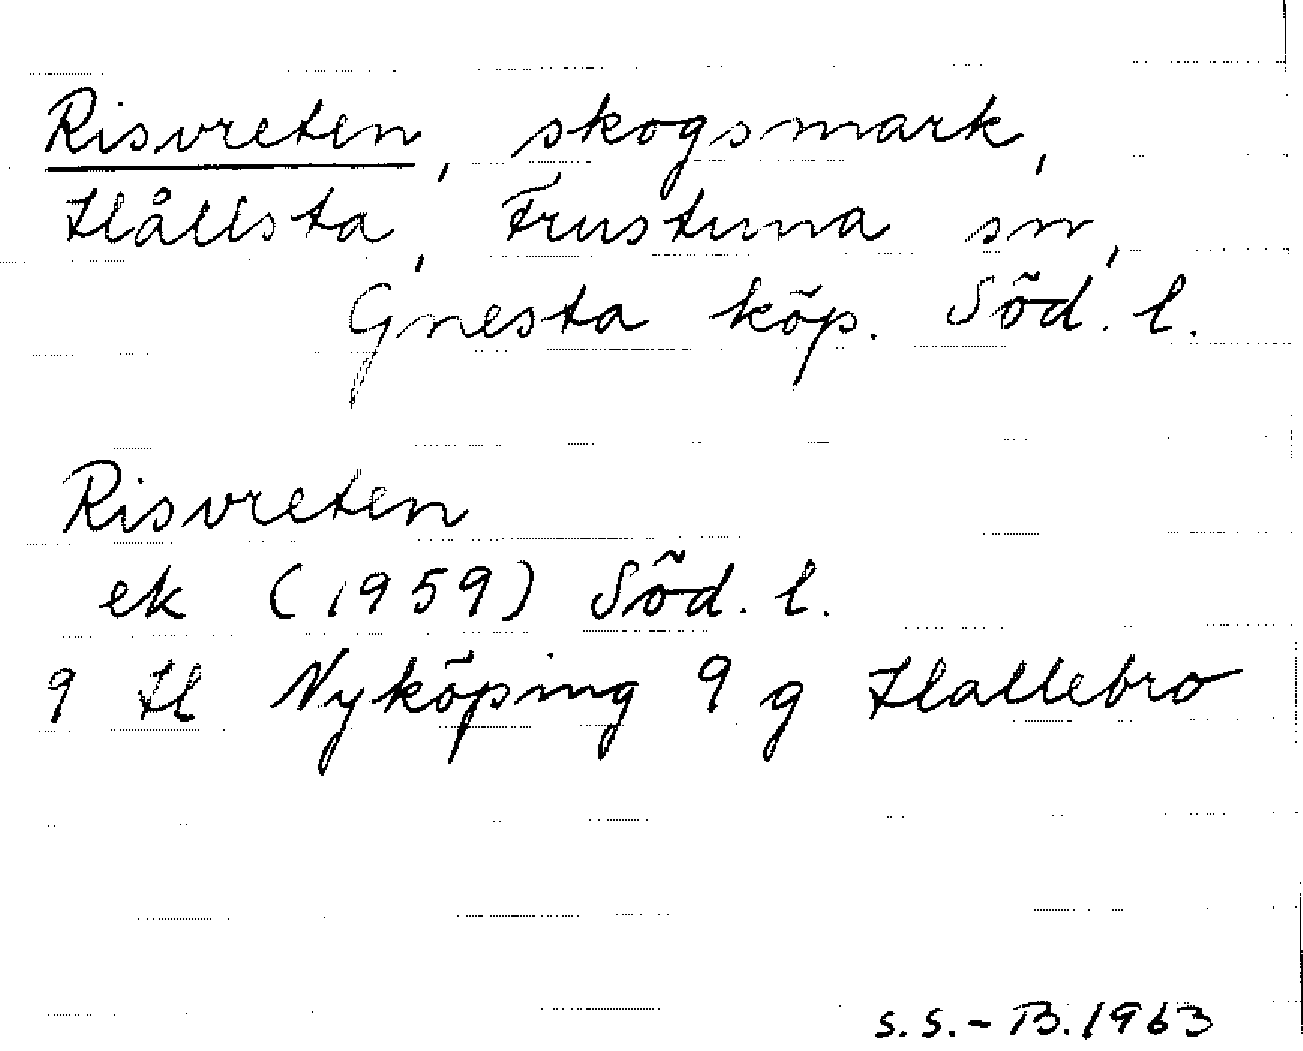 Risvreten, skogsmark,
Hållsta, Frustuna sn,
Gnesta köp. Söd. l.
Risvreten
ek (1959) Söd. l.
9 H Nyköping 9 g Hallebro
S.S.-B. 1963